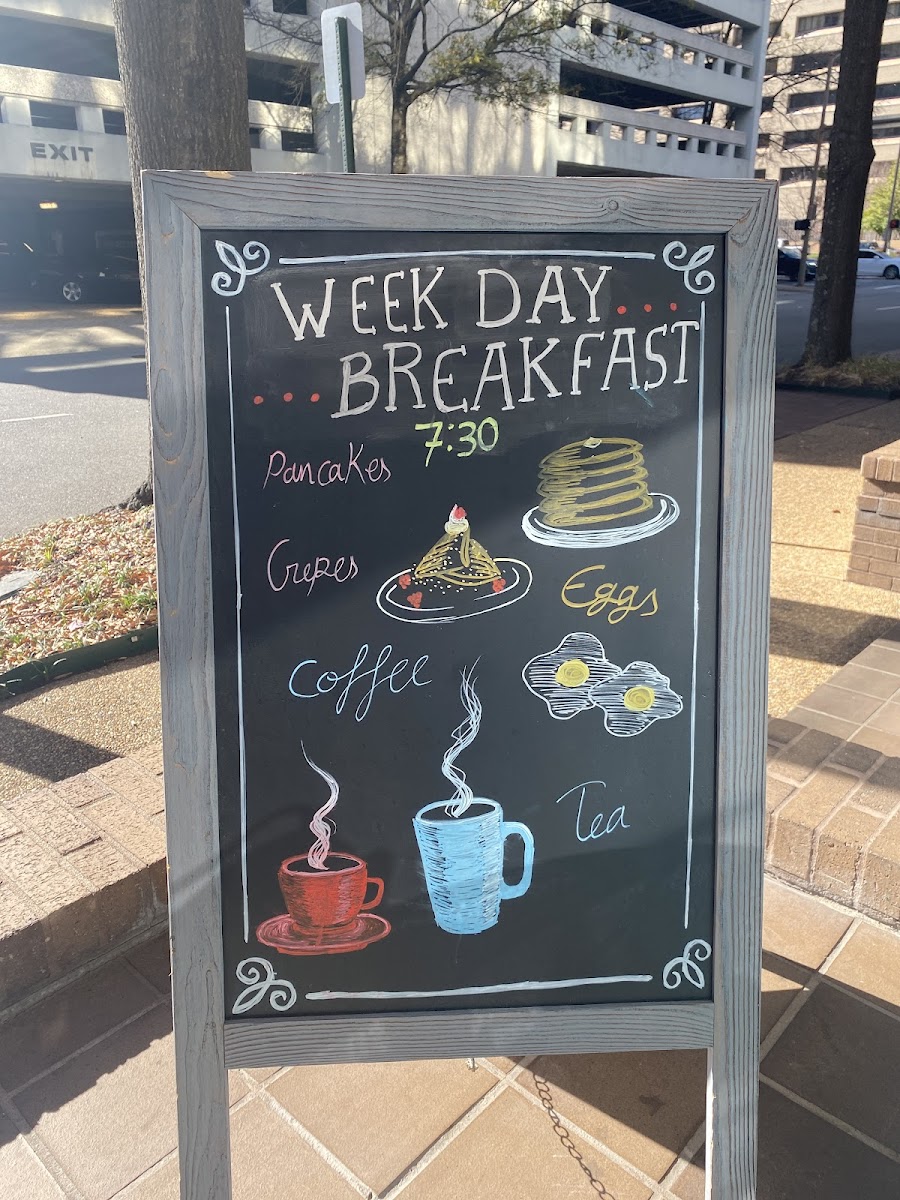 EXIT
WEEK DAY...
...BREAKFAST
7:30
Pancakes
Crepes
Eggs
Coffee
Tea